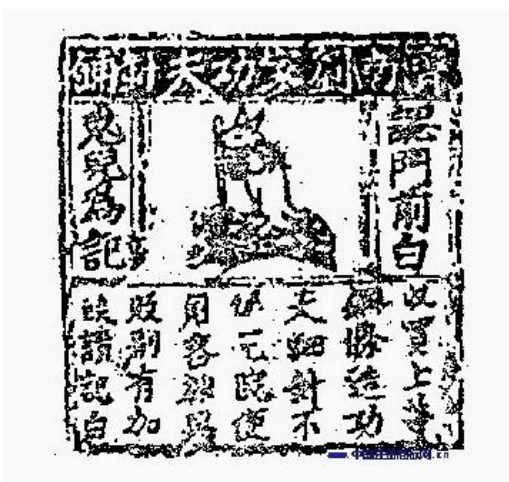 濟南劉家功夫針鋪
認門前白
兔兒為記
收買上等
鋼條造功
夫細針不
宅院使
用客與
販別有加
饒請記白